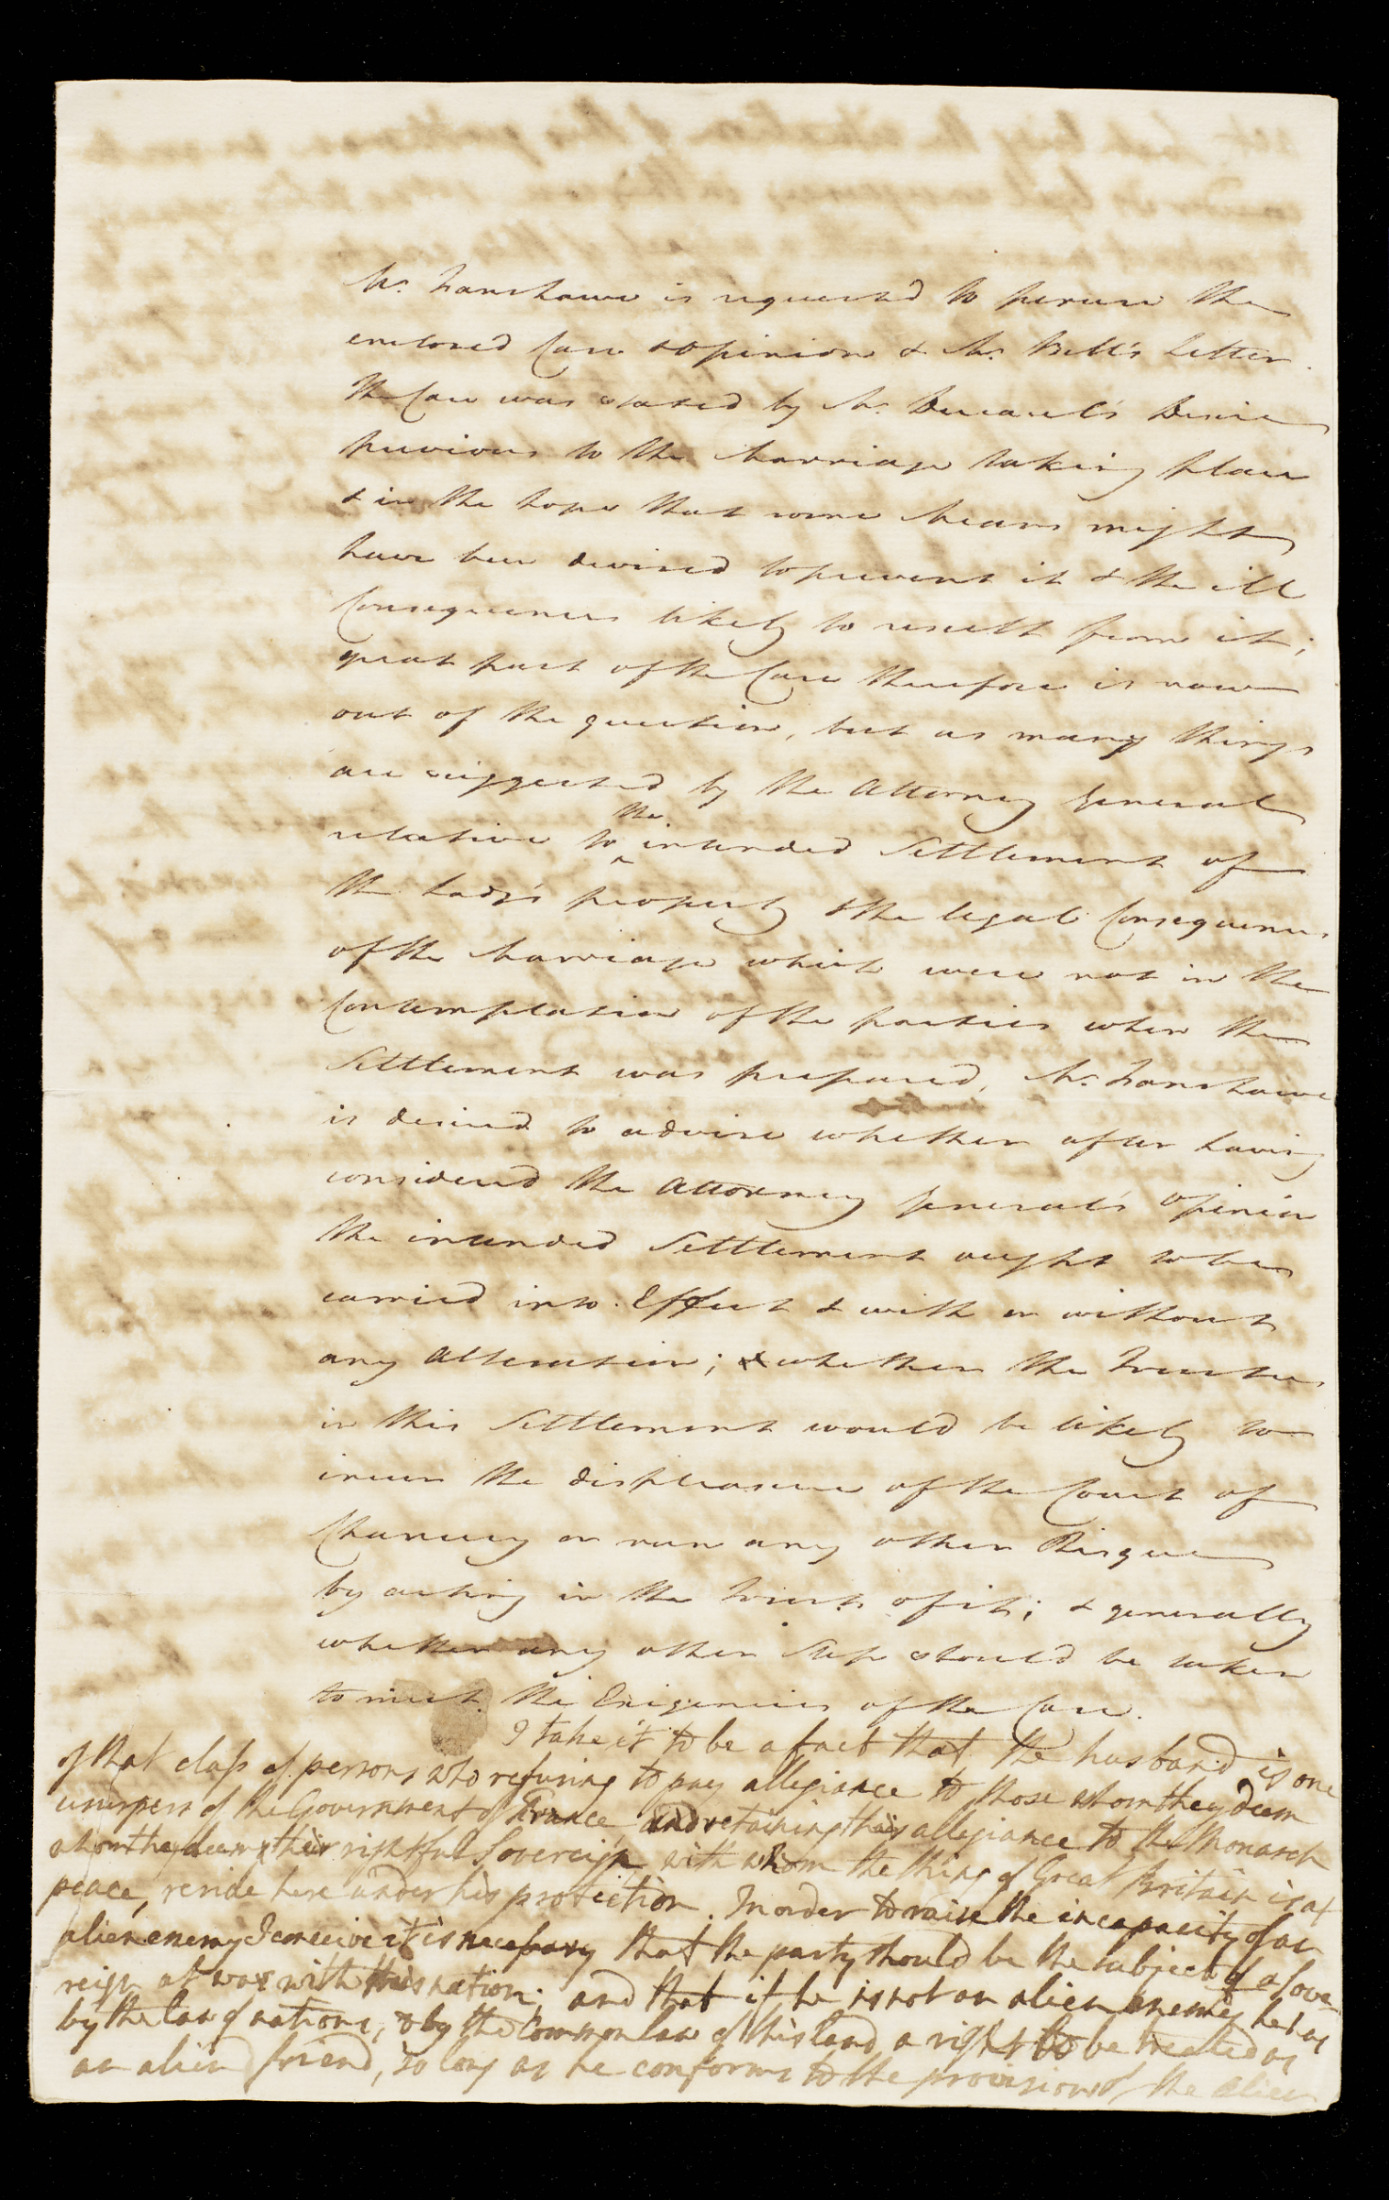 Mr. Fanshawe is requested to peruse the
enclosed Case & Opinion & Mr. Bell's Letter.
The Case was stated by Mr. Ducarel's Desire
previous to the Marriage taking place
& in the hopes that some Means might
have been devised to prevent it & the ill
Consequences likely to result from it;
great part of the Case therefore is now
out of the question, but as many things
are suggested by the Attorney General
relative to the intended Settlement of
the Lady's property & the legal Consequences
of the Marriage which were not in the
Contemplation of the parties when the
Settlement was prepared, Mr. Fanshawe
is desired to advise whether after having
considered the Attorney General's opinion
the intended Settlement ought to be
carried into Effect & with or without
any Alteration; & whether the Trustees
in this Settlement would be likely to
incur the displeasure of the Court of
Chancery or run any other Risque
by acting in the Trusts of it; & generally
whether any other Step should be taken
to meet the Exigencies of the Case.
I take it to be a fact that the husband is one
of that class of persons who refusing to pay allegiance to those whom they deem
usurpers of the Government of France, and retaining their allegiance to the Monarch
whom they deem their rightful Sovereign with whom the King of Great Britain is at
peace, reside here under his protection. In order to raise the incapacity of an
alien enemy I conceive it is necessary that the party should be the subject of a Sove-
reign at war with this nation; and that if he is not an alien enemy he has
by the law of nations, & by the Common law of this land, a right to be treated as
an alien friend, so long as he conforms to the provisions of the Alien